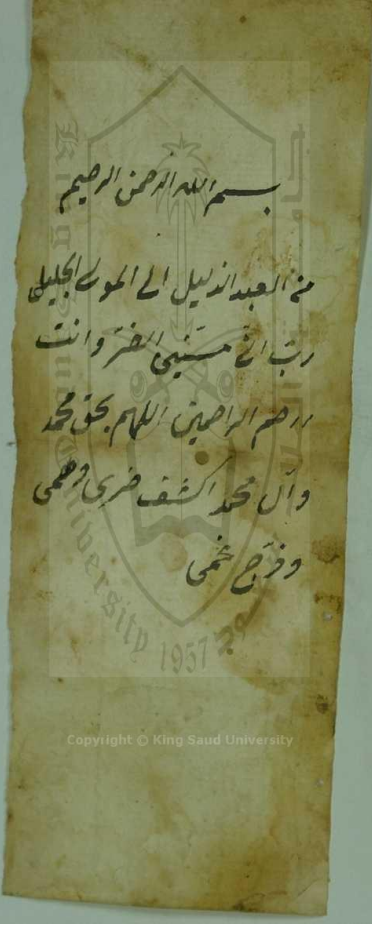 بسم الله الرحمن الرحيم
من العبد الذليل الى المولى الجليل
رب انى مسنى الضر وانت
ارحم الراحمين اللهم بحق محمد
وآل محمد اكشف ضرى وهمى
وفرج غمى
King Saud University 1957
Copyright © King Saud University